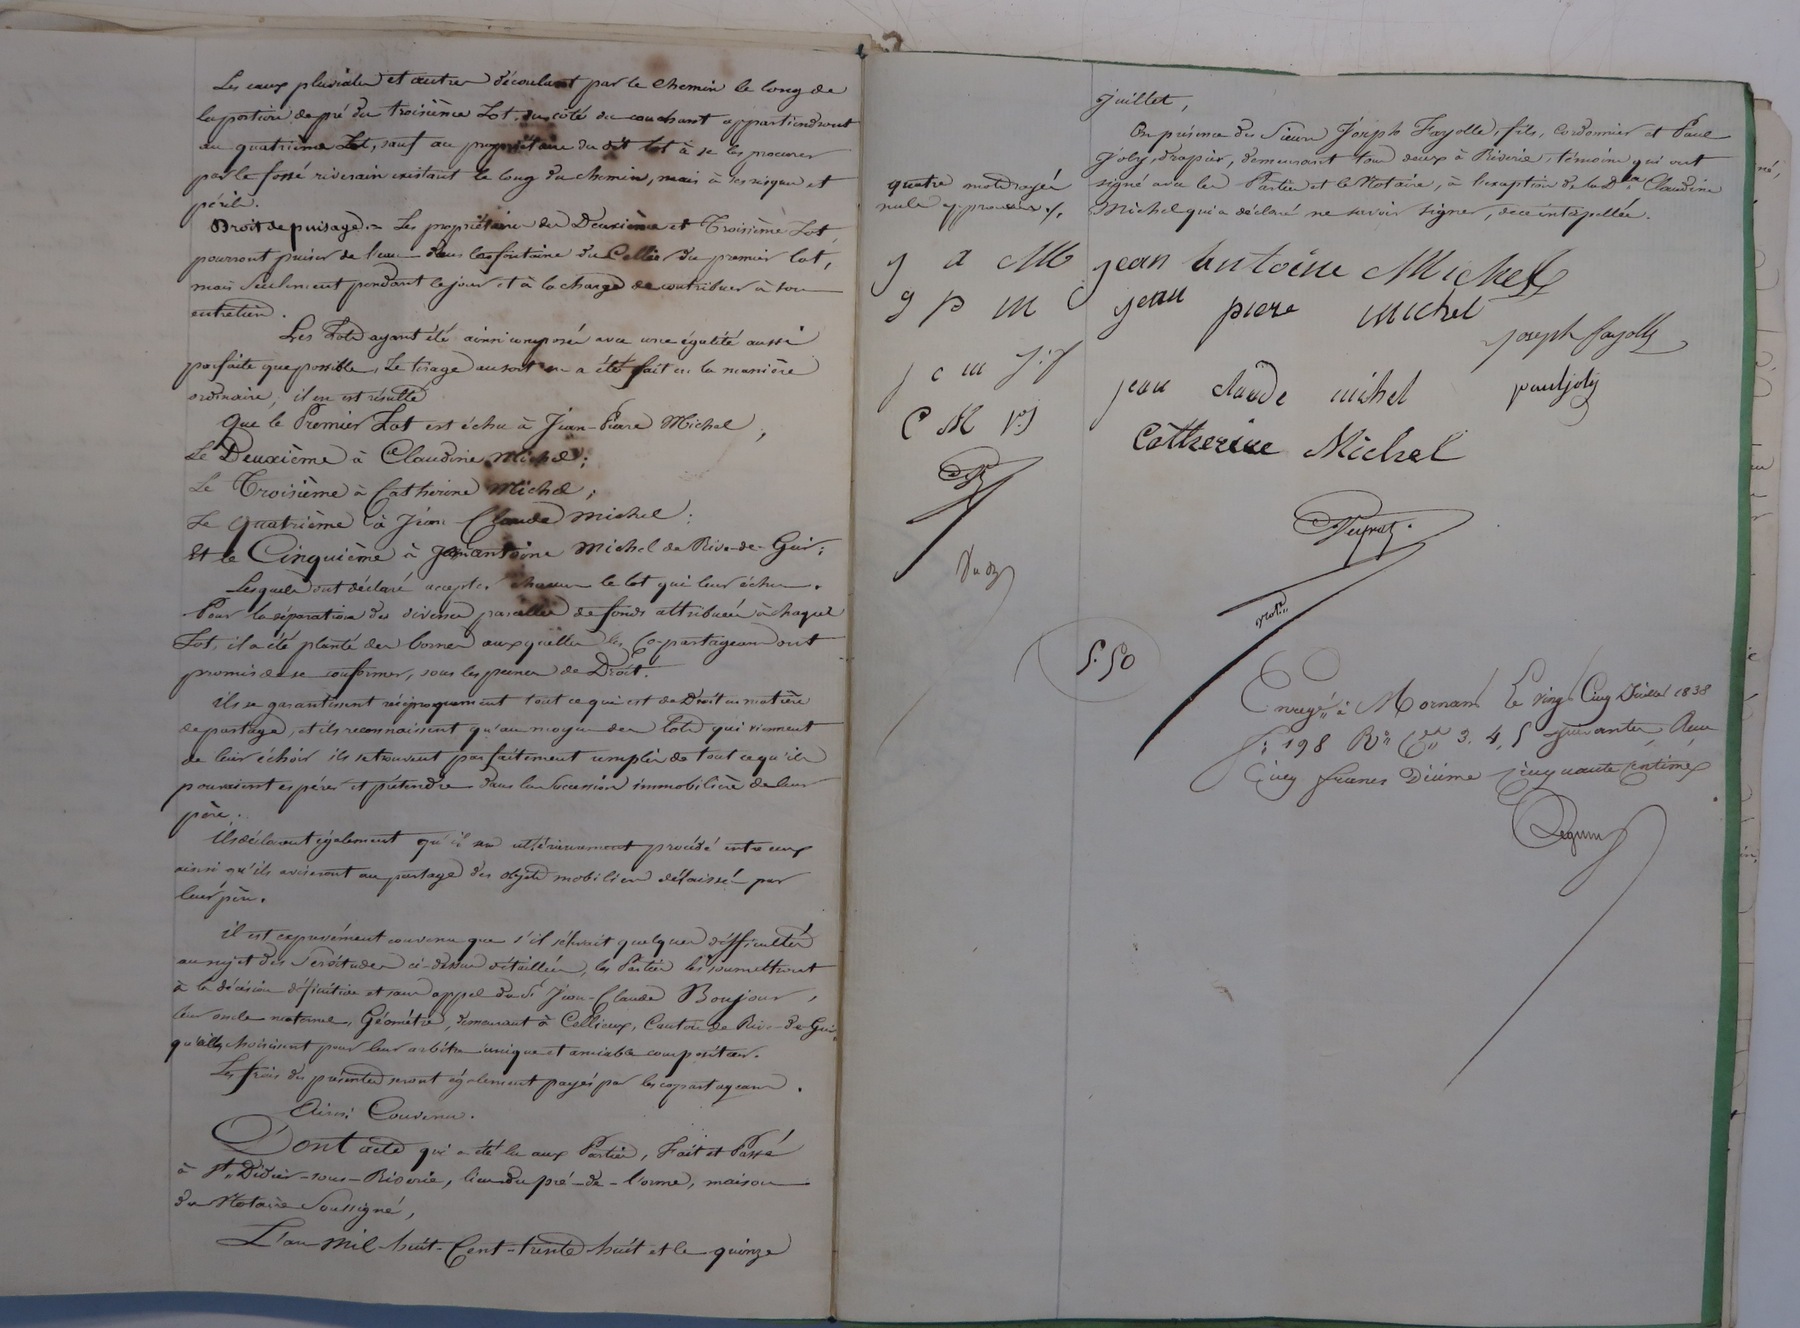 Les eaux pluviales et autres découlant par le chemin le long de
la portion de pré du troisième Lot, du côté du couchant appartiendront
au quatrième Lot, sauf au propriétaire du dit lot à se les procurer
par le fossé riverain existant le long du chemin, mais à ses risques et
périls.
Droit de puisage. = Les propriétaires des Deuxième et Troisième Lots,
pourront puiser de l'eau dans la fontaine du Cellier du premier lot,
mais seulement pendant le jour et à la charge de contribuer à son
entretien.
Les Lots ayant été ainsi composés avec une égalité aussi
parfaite que possible, Le tirage au sort en a été fait en la manière
ordinaire, il en est résulté
Que le Premier Lot est échu à Jean-Pierre Michel,
Le Deuxième à Claudine Michel;
Le Troisième à Catherine Michel;
Le Quatrième à Jean Claude Michel;
Et le Cinquième à Jean antoine Michel de Rive-de-Gier;
Lesquels ont déclaré accepter chacun le lot qui leur échu.
Pour la séparation des diverses parcelles de fonds attribuées à chaque
Lot, il a été planté des bornes auxquelles les Co-partageans ont
promis de se conformer, sous les peines de Droit.
ils se garantissent réciproquement tout ce qui est de Droit en matière
de partage, et ils reconnaissent qu'au moyen des lots qui viennent
de leur échoir ils se trouvent parfaitement remplis de tout ce qu'ils
pouvaient espérer et prétendre dans la succession immobilière de leur
père.
Ils déclarent également qu'il sera ultérieurement procédé entre eux
ainsi qu'ils aviseront au partage des objets mobiliers délaissés par
leur père.
il est expressément convenu que s'il s'élevait quelques difficultés
au sujet des Servitudes ci-dessus détaillées, les Parties les soumettront
à la décision définitive et sans appel du Sr Jean-Claude Boujour,
leur oncle maternel, Géomètre, demeurant à Cellieux, Canton de Rive-de-Gier,
qu'ils choisissent pour leur arbitre unique et amiable compositeur.
Les frais des présentes seront également payés par les copartageans.
Ainsi Convenu.
Dont acte qui a été lu aux Parties, Fait et Passé
à St. Didier-sous-Riverie, lieu du pré-de-l'orme, maison
du Notaire Soussigné,
L'an Mil-huit-Cent-trente huit et le quinze
juillet,
En présence des Sieurs Joseph Fayolle, fils, cordonnier et Paul
Joly, drapier, demeurant tous deux à Riverie, témoins qui ont
signé avec les Parties et le Notaire, à l'exception de la Dlle Claudine
Michel qui a déclaré ne savoir signer, de ce interpellée.
quatre mots rayés
nuls approuvés ./.
j a M
jean Antoine Michel
j p m
jean piere michel
joseph fayolle
j c m J:f
jean claude michel
paul joly
C M P.J
Catherine Michel
notre
5.50
Enregé à Mornant Le vingt Cinq Juillet 1838
f° 198 R° Ces 3. 4, 5 suivantes, Reçu
Cinq francs Dixième Cinquante Centimes